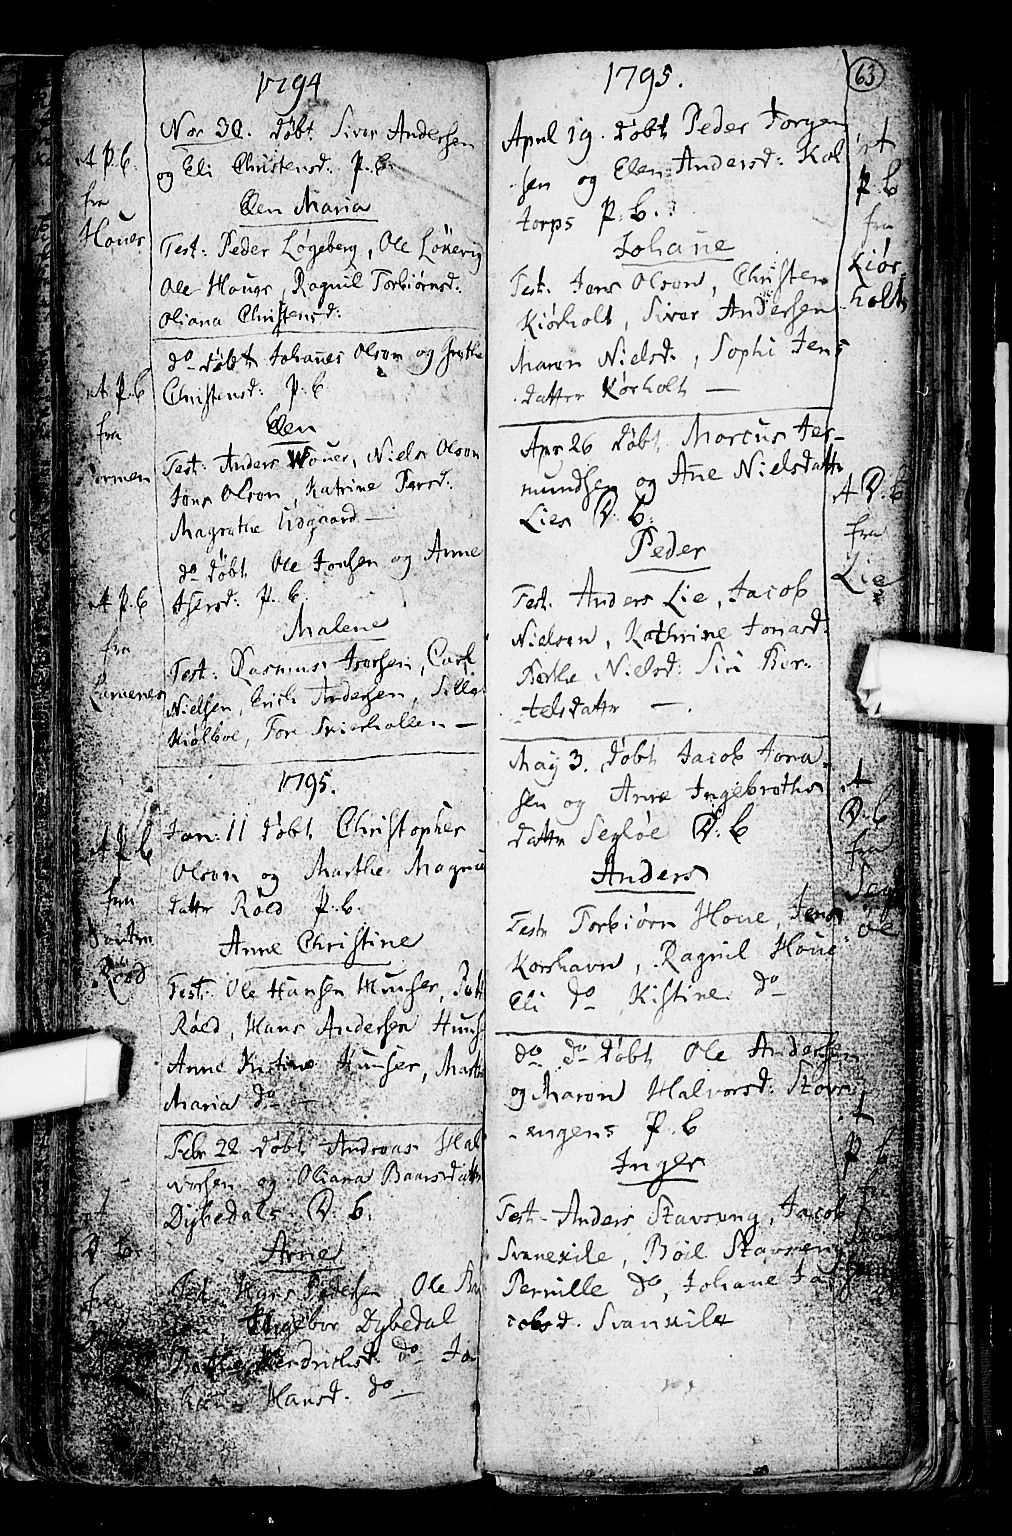 1794
A P. b.
fra
Houer
Nov 30. døbt Siver Andersen
og Eli Christensd. P. b.
Elen Maria
Test: Peder Løgeberg, Ole Løkevig
Ole Houer, Ragnil Torbiørnsd.
Oliana Christensd:
A P. b
fra
do døbt Johañes Olson og Grethe
Christensd: P. b
Elen
Test: Anders Houer, Niels Olson
Jens Olson, Katrine Persd:
Magrethe Udgaard —
A P. b
fra
do døbt Ole Jonsen og Anne
P. b.
Malene
Test: Rasmus Iversen, Carl
Nielsen, Erich Andersen,
Kiølboe, Tore
1795.
A P. b
fra
Røed
Jan: 11 døbt Christopher
Olson og Marthe Magnus
datter Røed P. b.
Anne Christine
Test: Ole Hansen Hunser,
Røed, Hans Andersen
Anne Kistine Hunser,
Maria do —
D. b.
fra
Febr 22 døbt Andreas Hal
vorsen og Oliana Baarsdatter
Dybedals D. b.
Anne
Test Pedersen, Ole
Ingebor Dybedal
Hendrichsd. do
Hansd. do —
63
1795.
A
P. b
fra
Kiør-
holt
April 19. døbt Peder Jørgen
sen og Elen Andersd: Kal
torps P. b.
Johañe
Test. Jens Olson, Christen
Kiørholt, Siver Andersen
Maren Nielsd., Sophi Jens
datter Kørholt —
A D. b
fra
Lie
Apr 26 døbt Marcus Aes-
mundsen og Añe Nielsdattr
Lies D. b.
Peder
Test. Anders Lie, Jacob
Nielsen, Kathrine Jonasd.
Berthe Nielsd: Siri Kor-
telsdatter —.
A
D. b
fra
May 3. døbt Jacob Jona-
sen og Anne Ingebreths
datter Segløe D. b
Anders
Test Torbiørn Houe, Jens
Korshavn, Ragnil Houe
Eli do Kistine do —
A
P. b
do do døbt Ole Andersen
og Maren Halvorsd: Stavs
-engens P. b
Inger
Test - Anders Stavseng, Jacob
Svanexile, Boil Stavseng
Pernille do, Johane Ja
cobsd. Svanxile